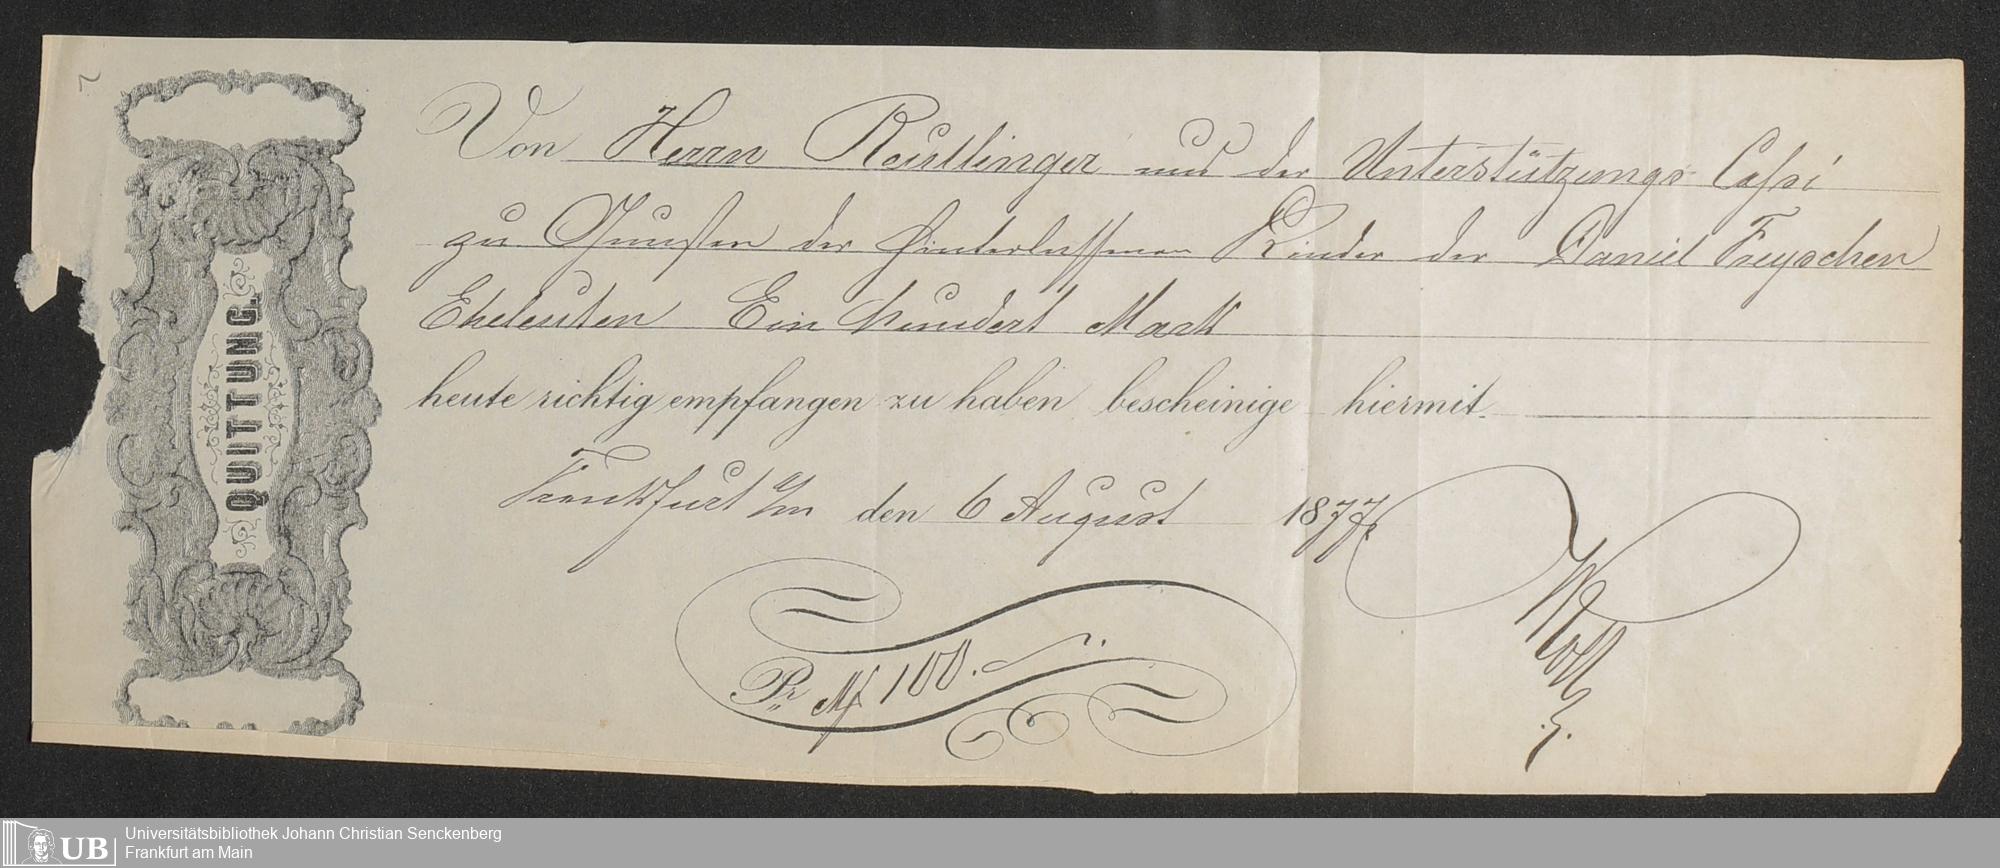 QUITTUNG.
Von Herrn Reutlinger aus der Unterstützungs Casse
zu Gunsten der hinterlassenen Kinder der Daniel Freyschen
Eheleuten Ein hundert Mark
heute richtig empfangen zu haben bescheinige hiermit
Frankfurt a/m den 6 August 1877.
Pr. M 100.
UB Universitätsbibliothek Johann Christian Senckenberg
Frankfurt am Main